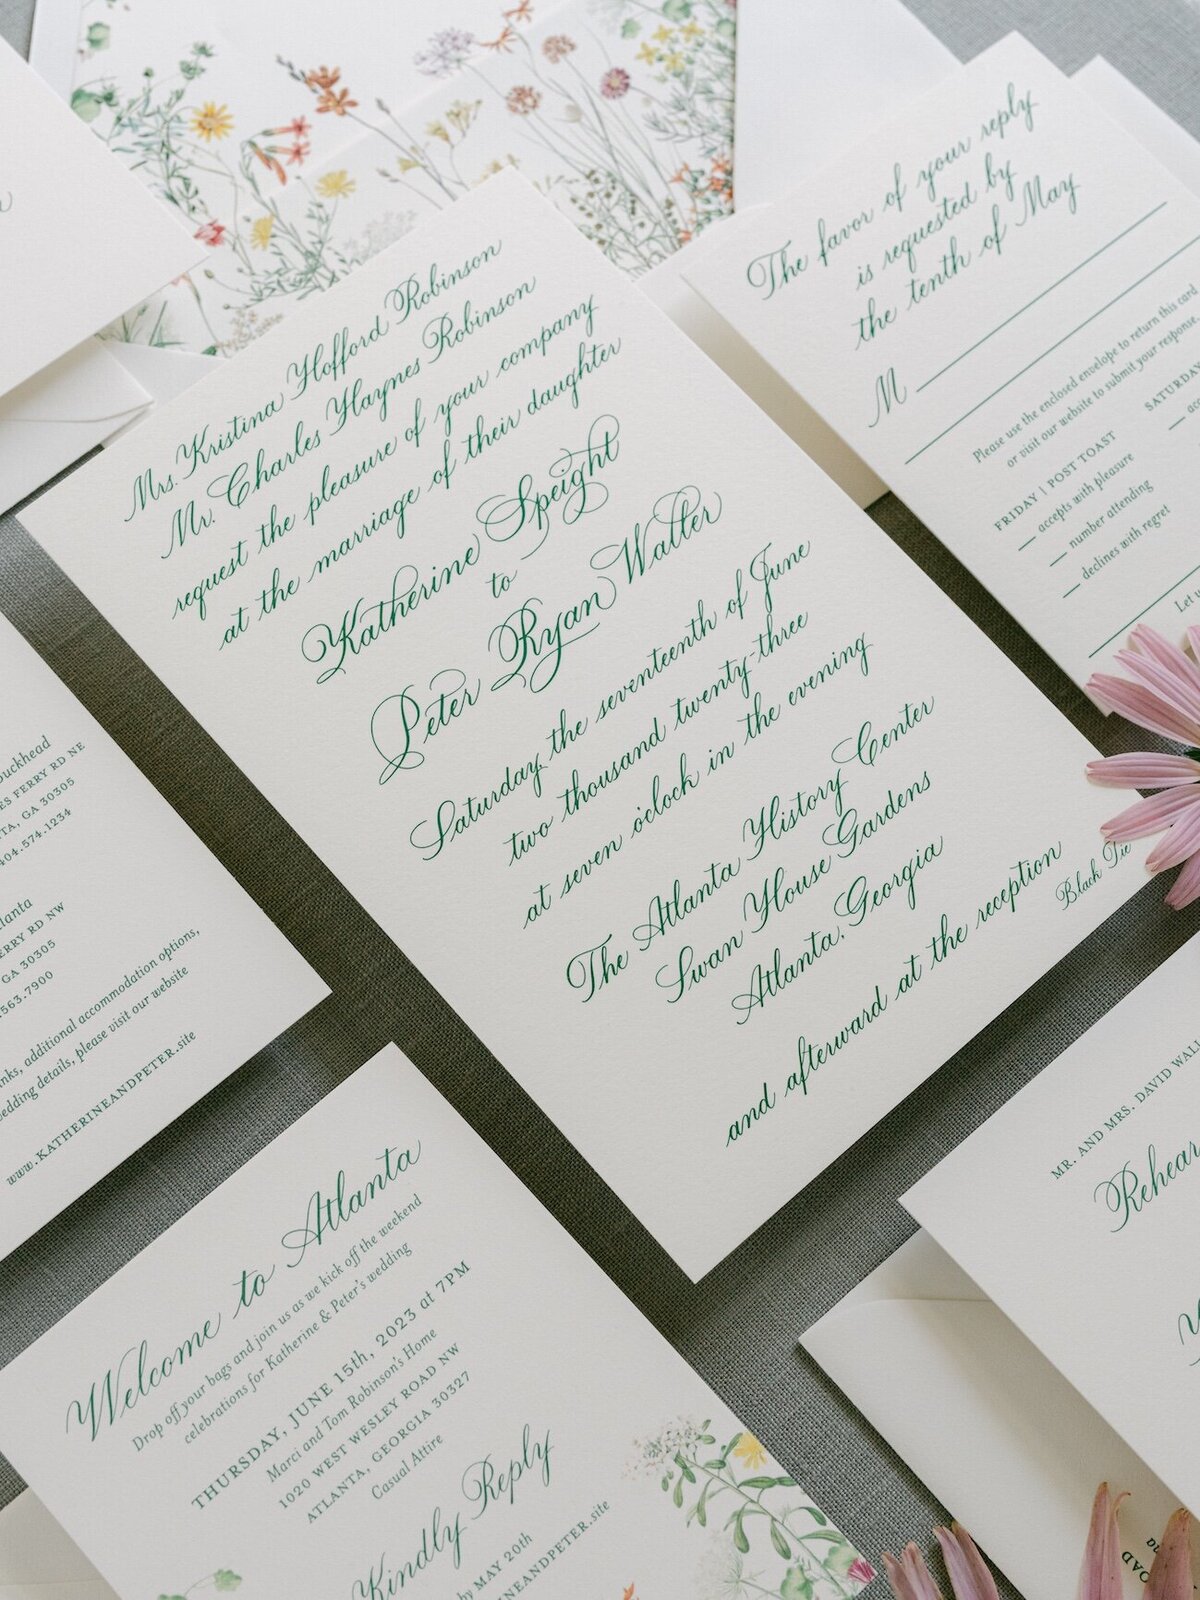 Mrs. Kristina Hofford Robinson
Mr. Charles Haynes Robinson
request the pleasure of your company
at the marriage of their daughter
Katherine Speight
to
Peter Ryan Walter
Saturday, the seventeenth of June
two thousand twenty-three
at seven o'clock in the evening
The Atlanta History Center
Swan House Gardens
Atlanta, Georgia
and afterward at the reception
Black Tie
The favor of your reply
is requested by
the tenth of May
M
Please use the enclosed envelope to return this card
or visit our website to submit your response.
FRIDAY | POST TOAST
accepts with pleasure
number attending
declines with regret
SATURDAY
Let
FERRY RD NE
GA 30305
404.574.1234
RD NW
GA 30305
563.7900
additional accommodation options,
wedding details, please visit our website
www.KATHERINEANDPETER.site
Welcome to Atlanta
Drop off your bags and join us as we kick off the weekend
celebrations for Katherine & Peter's wedding
THURSDAY, JUNE 15th, 2023 at 7PM
Marci and Tom Robinson's Home
1020 WEST WESLEY ROAD NW
ATLANTA, GEORGIA 30327
Casual Attire
Kindly Reply
by MAY 20th
NEANDPETER.site
MR. AND MRS. DAVID WAL
Rehear